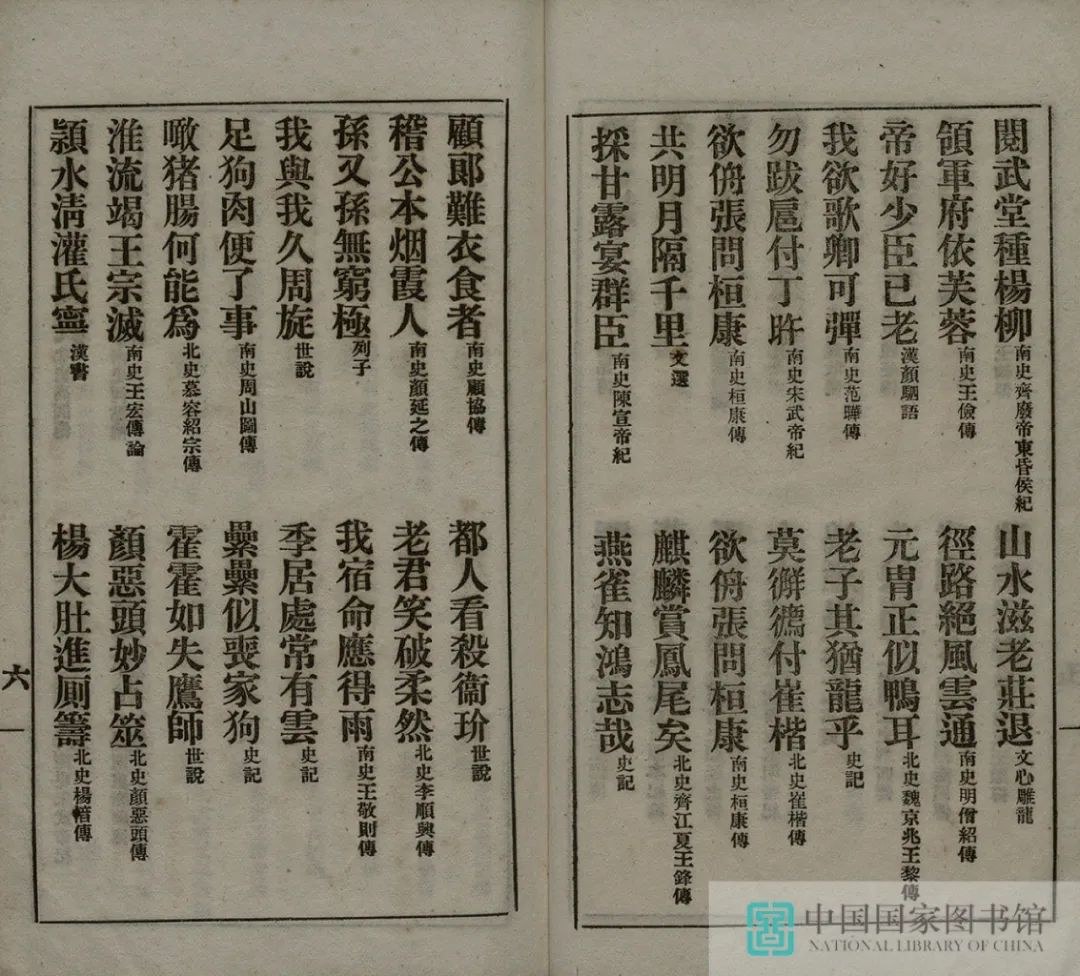 閱武堂種楊柳南史齊廢帝東昏侯紀
山水滋老莊退文心雕龍
領軍府依芙蓉南史王儉傳
徑路絕風雲通南史明僧紹傳
帝好少臣已老漢顏駟語
元胄正似鴨耳北史魏京兆王黎傳
我欲歌卿可彈南史范曄傳
老子其猶龍乎史記
勿跋扈付丁旿南史宋武帝紀
莫獬㺔付崔楷北史崔楷傳
欲侜張問桓康南史桓康傳
欲侜張問桓康南史桓康傳
共明月隔千里文選
麒麟賞鳳尾矣北史齊江夏王鋒傳
採甘露宴群臣南史陳宣帝紀
燕雀知鴻志哉史記
顧郎難衣食者南史顧協傳
都人看殺衞玠世說
稽公本烟霞人南史顏延之傳
老君笑破柔然北史李順興傳
孫又孫無窮極列子
我宿命應得雨南史王敬則傳
我與我久周旋世說
季居處常有雲史記
足狗肉便了事南史周山圖傳
纍纍似喪家狗史記
噉猪腸何能爲北史慕容紹宗傳
霍霍如失鷹師世說
淮流竭王宗滅南史王宏傳論
顏惡頭妙占筮北史顏惡頭傳
潁水淸灌氏寧漢書
楊大肚進厠籌北史楊愔傳
六
中国国家图书馆
NATIONAL LIBRARY OF CHINA